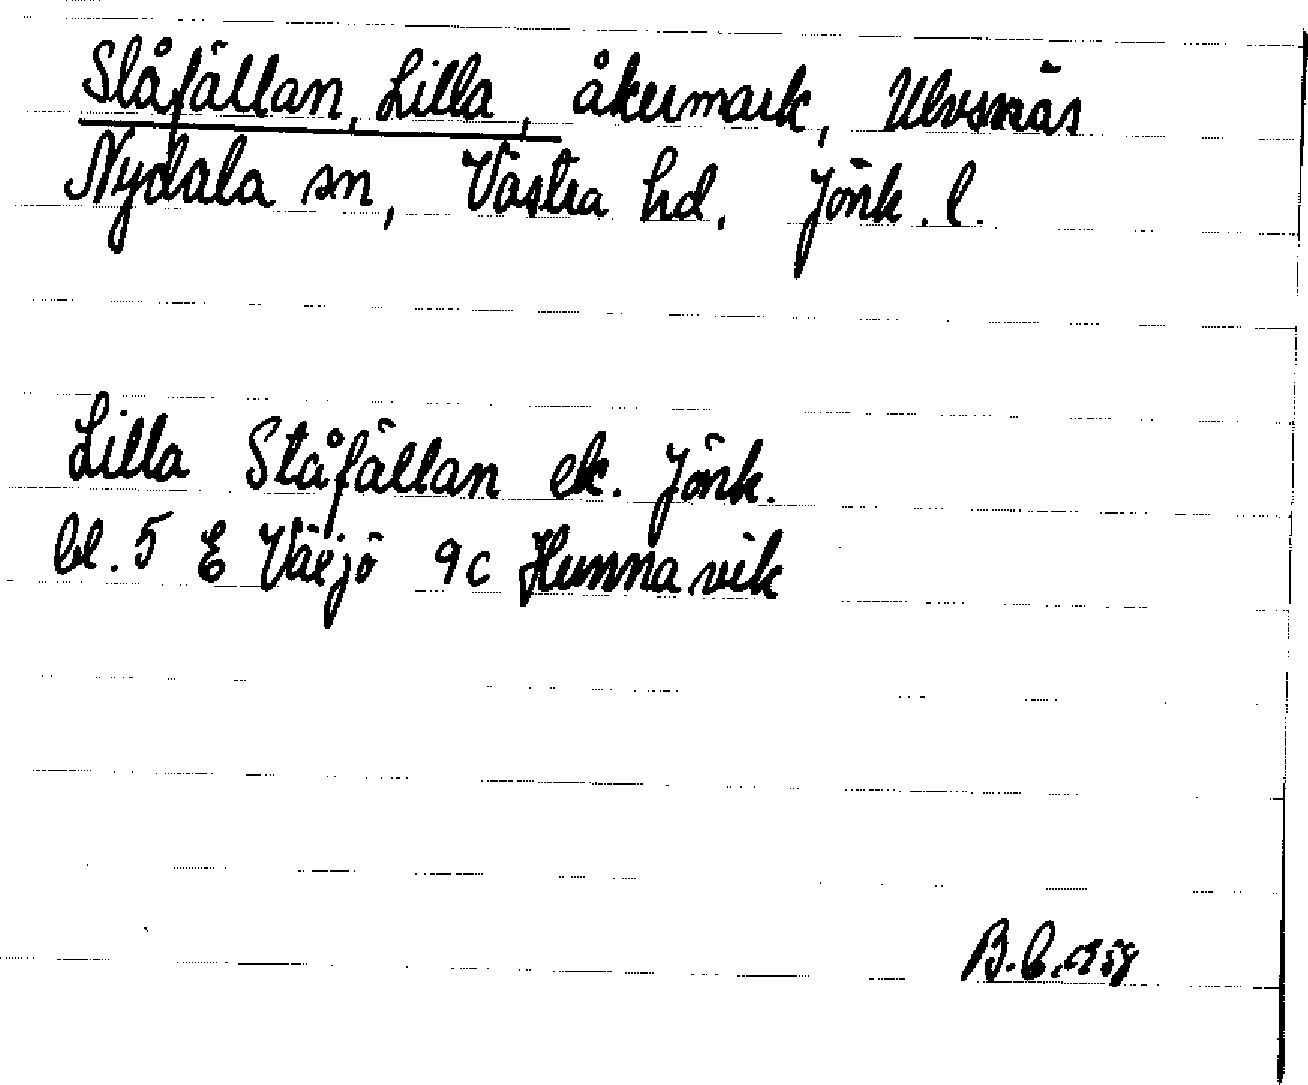 Slåfällan, Lilla, åkermark, Ulvsnäs
Nydala sn, Västra hd. Jönk. l.
Lilla Ståfällan ek. Jönk.
bl. 5 E Växjö 9c Hunnavik